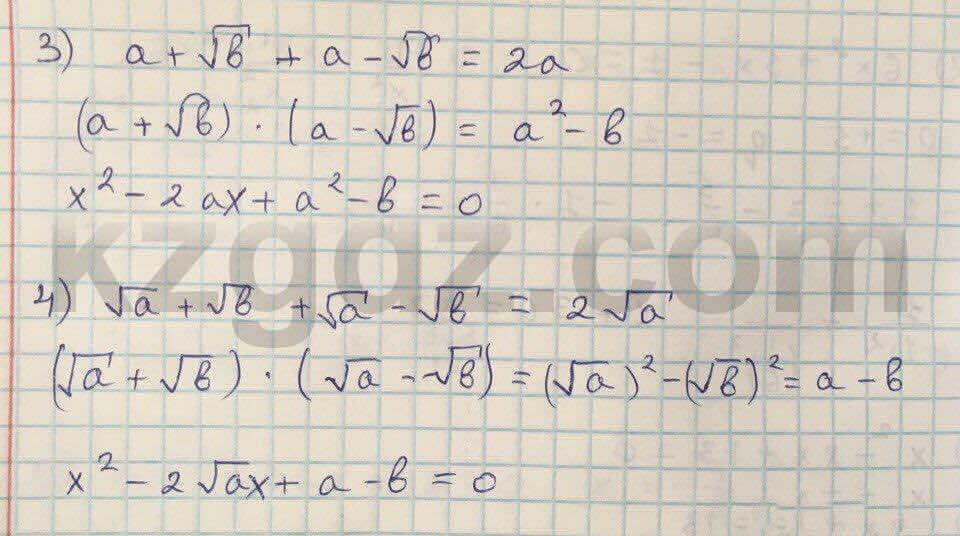 3) a + √b + a - √b = 2a
(a + √b) · (a - √b) = a² - b
x² - 2ax + a² - b = 0
kzgdz.com
4) √a + √b + √a - √b = 2√a
(√a + √b) · (√a - √b) = (√a)² - (√b)² = a - b
x² - 2√ax + a - b = 0